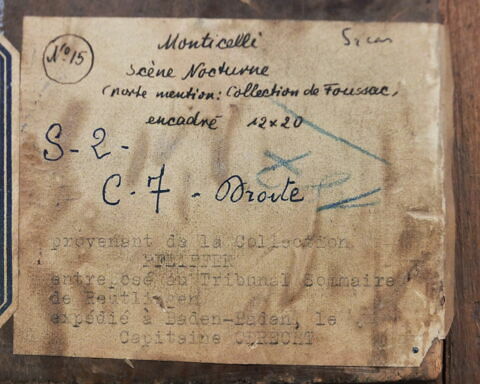 No 15
Monticelli
Scène Nocturne
(porte mention: Collection de Foussac,
encadré 12x20
S-2-
C.7 - Droite
provenant de la Collection
entreposé au Tribunal Sommaire
de Reutlingen
expédié à Baden-Baden, le
Capitaine